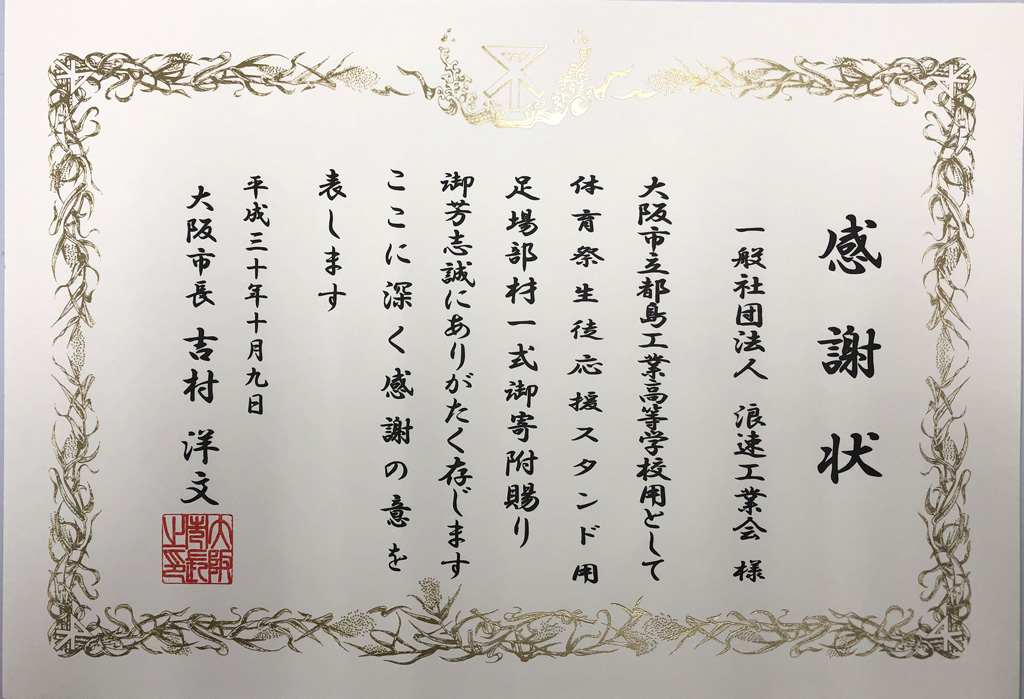 感謝状
一般社団法人 浪速工業会 様
大阪市立都島工業高等学校用として
体育祭生徒応援スタンド用
足場部材一式御寄附賜り
御芳志誠にありがたく存じます
ここに深く感謝の意を
表します
平成三十年十月九日
大阪市長 吉村 洋文
大阪市長之印